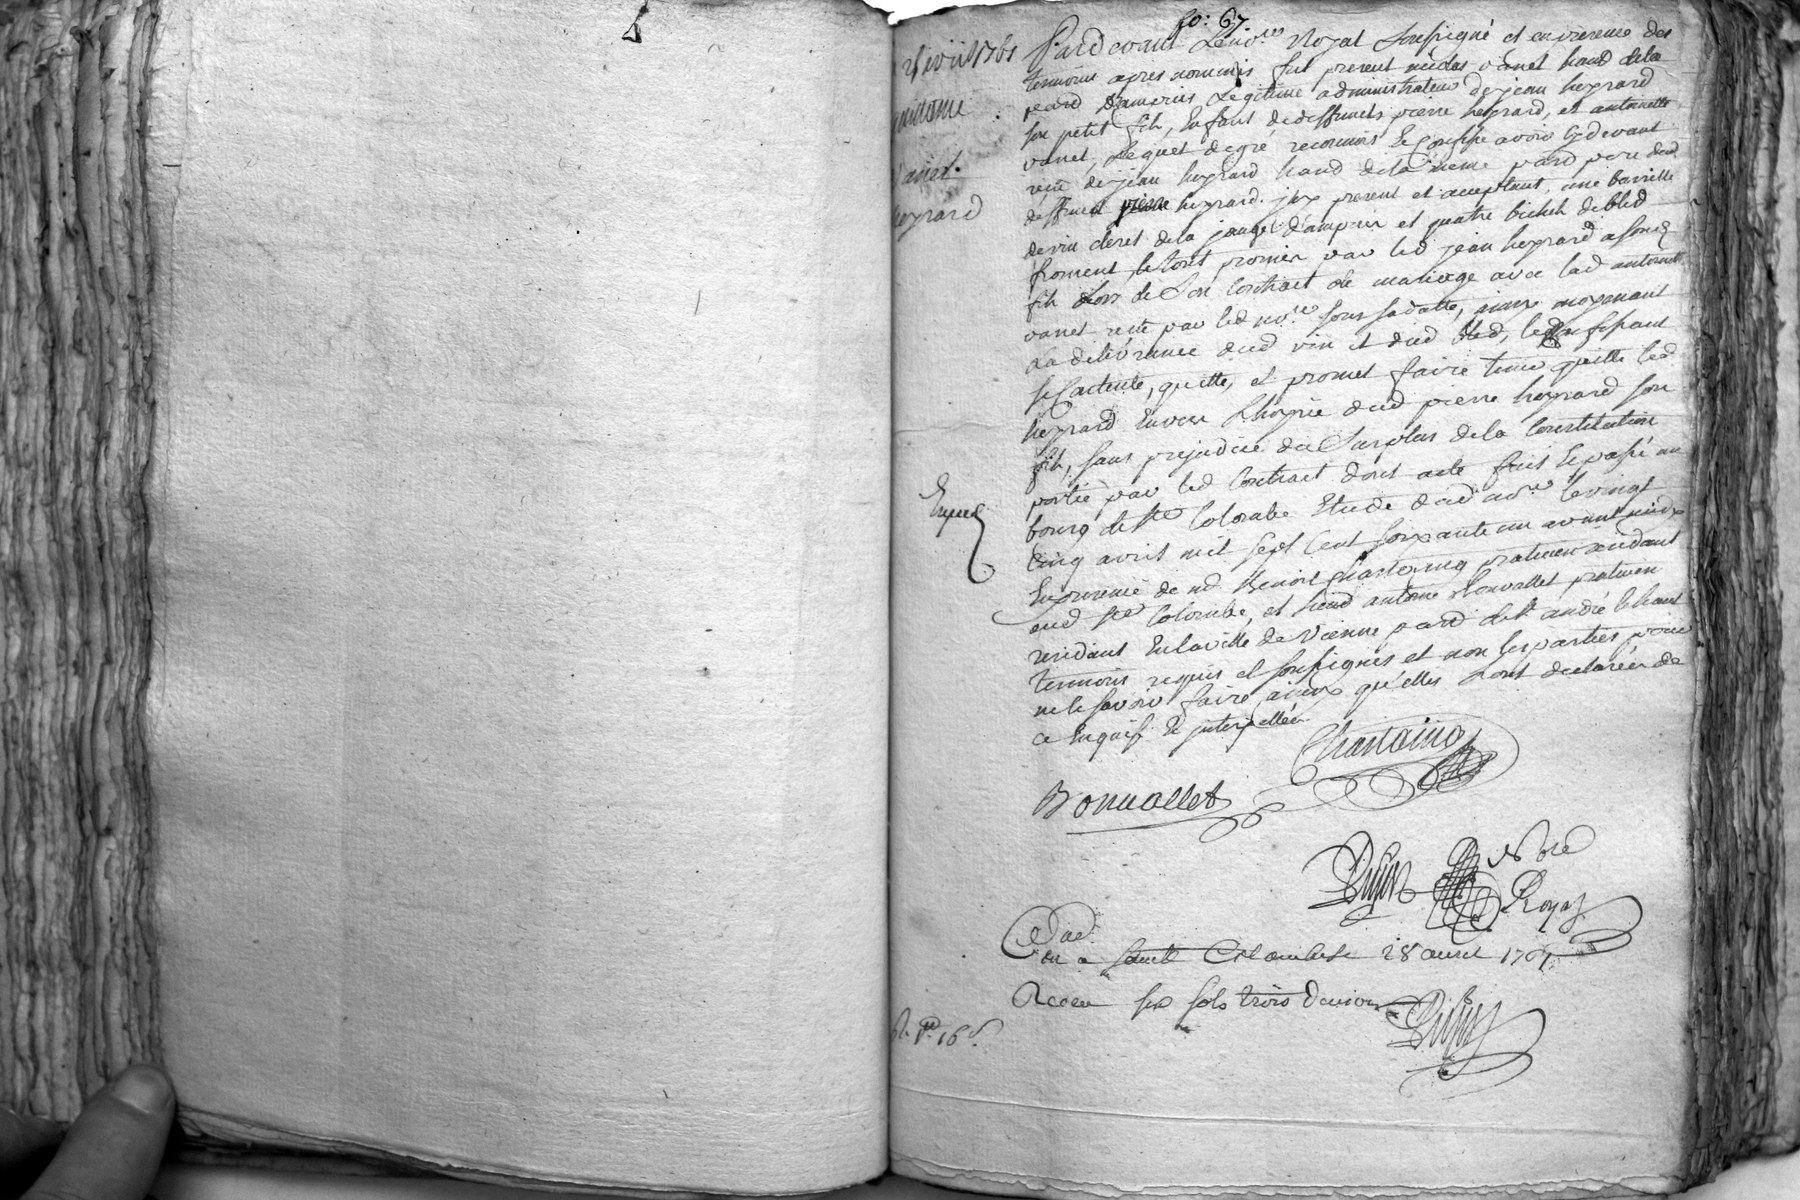 fo: 67
25 avril 1761
quittance
vanet
heyrard
Pardevant Le no.re Royal Soussigné et en presence des
temoins apres nommés fut present nicolas vanet hand de la
parr d'ampuis Legitime administrateur de jean heyrard
son petit fils, Enfant de deffunts pierre heyrard, et antoinette
vanet, Lequel de gré reconnois Et Confesse avoir Cydevant
reçu de jean heyrard hand de la meme parr pere dud
deffunct pierre heyrard. icy present et acceptant, une barrille
de vin cleret de la jauge d'ampuis et quatre bichets de bled
froment, le tout promis par led jean heyrard a sond
fils Lors de Son Contract de mariage avec lad antoinette
vanet reçu par led no.re Sous sa datte, ainsy moyenant
La delivrance dud vin et dud bled, led Confessant
se Contente, quitte, et promet faire tenir quitte led
heyrard Envers L'hoyrie dud pierre heyrard son
fils, sans prejudice du Surplus de la Constitution
portée par led Contract dont acte fait Et passé au
bourg de Ste Colombe Etude dud no.re le vingt
Cinq avril mil sept Cent Soixante un avant midy
En presence de md Benoit Chastaing praticien residant
aud Ste Colombe, et sieur antoine Bonvallet praticien
residant En la ville de Vienne parr de St andré le haut
temoins requis et soussignés et non les parties pour
ne le savoir faire ainsy qu'elles Lont declarées de
ce Enquis Et interpellées
Exped
Chastaing
Bonvallet
Dujas No.re
Royal
Con.le a Sainte Colombe 28 avril 1761
Receu six sols trois deniers
Dujas